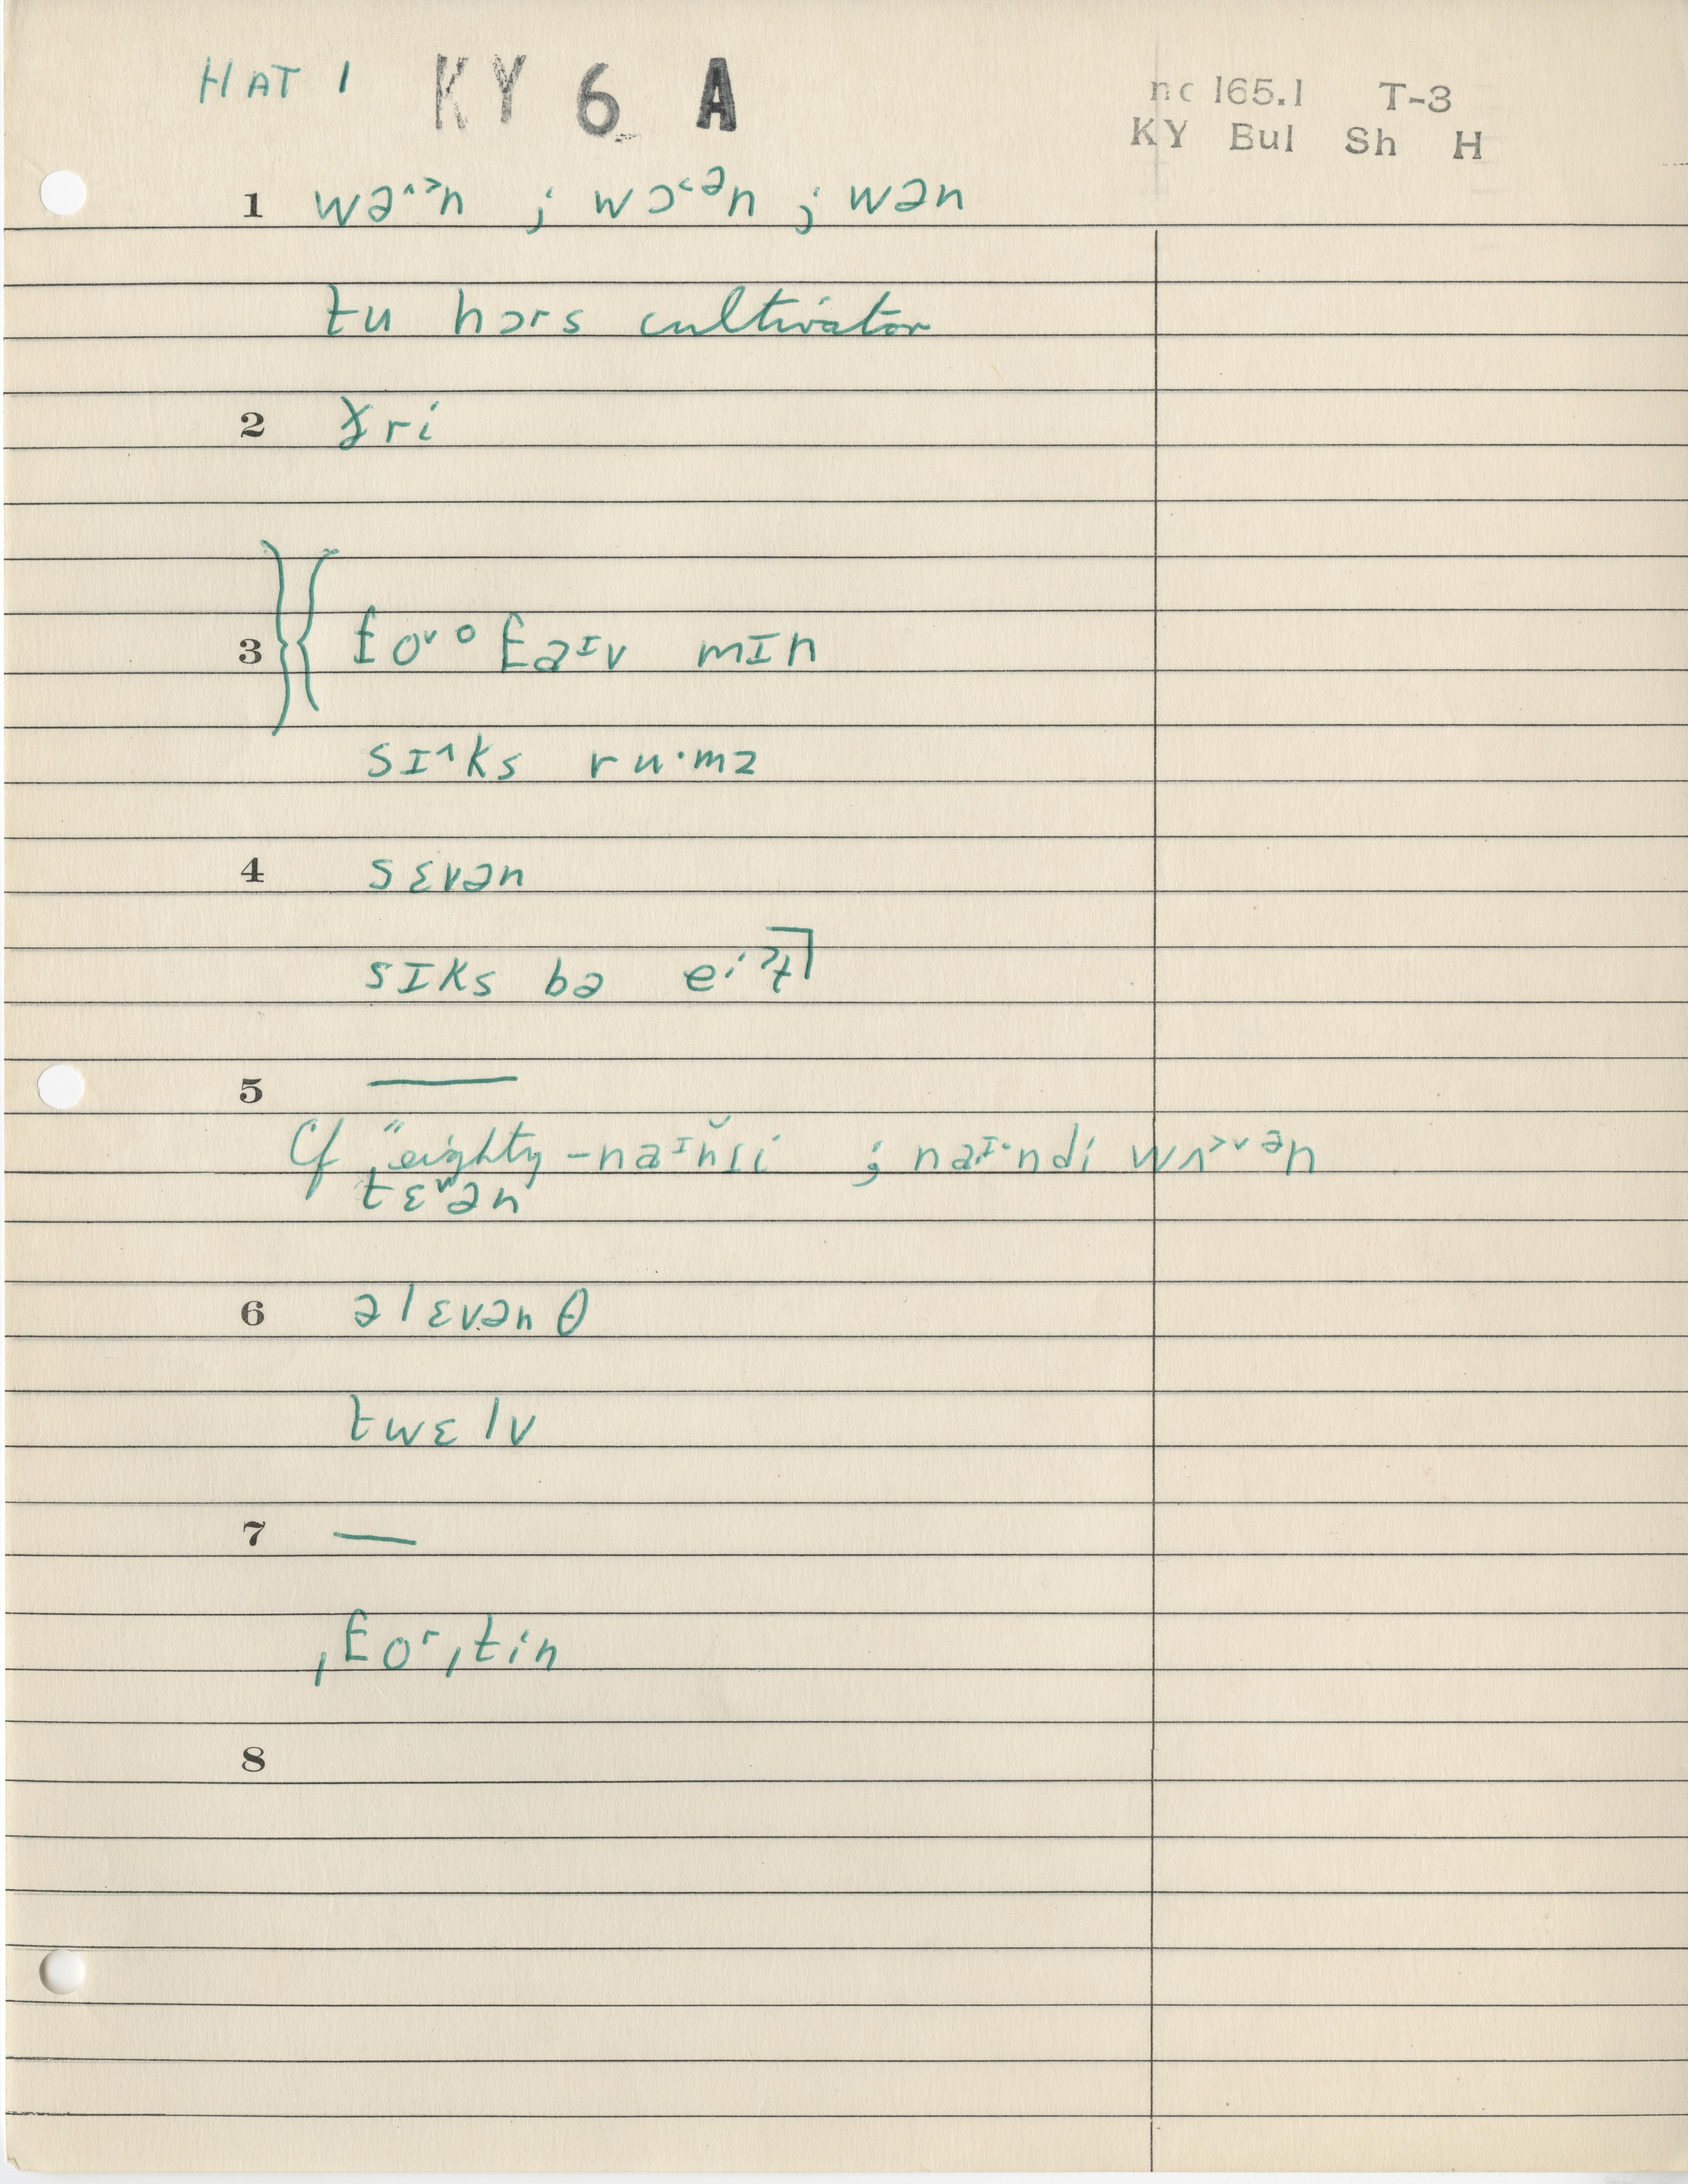 HAT 1 KY 6 A
nc 165.1 T-3
KY Bul Sh H
1 wə^>n ; wɔ<ᵊn ; wən
tu hɔrs cultivator
2 ri
3 }{ foᵛ° faᶦv mɪn
sɪ^ks ru·mz
4 sɛvən
sɪks bə
5 —
Cf "eighty ; naᶦ·ndi wʌ>ᵛᵊn
6 əlɛvənθ
twɛlv
7 —
ˌfoʳˌtin
8